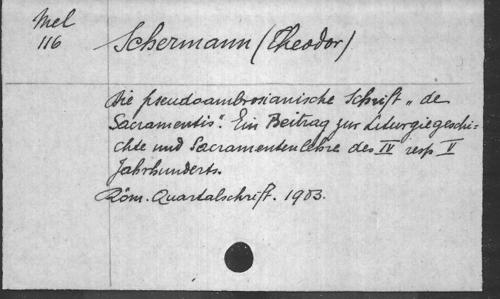 Mel
116
Schermann (Theodor)
Die pseudoambrosianische Schrift „de
Sacramentis". Ein Beitrag zur Liturgiegeschi-
chte und Sacramentenlehre des IV resp V
Jahrhunderts.
Röm. Quartalschrift. 1903.